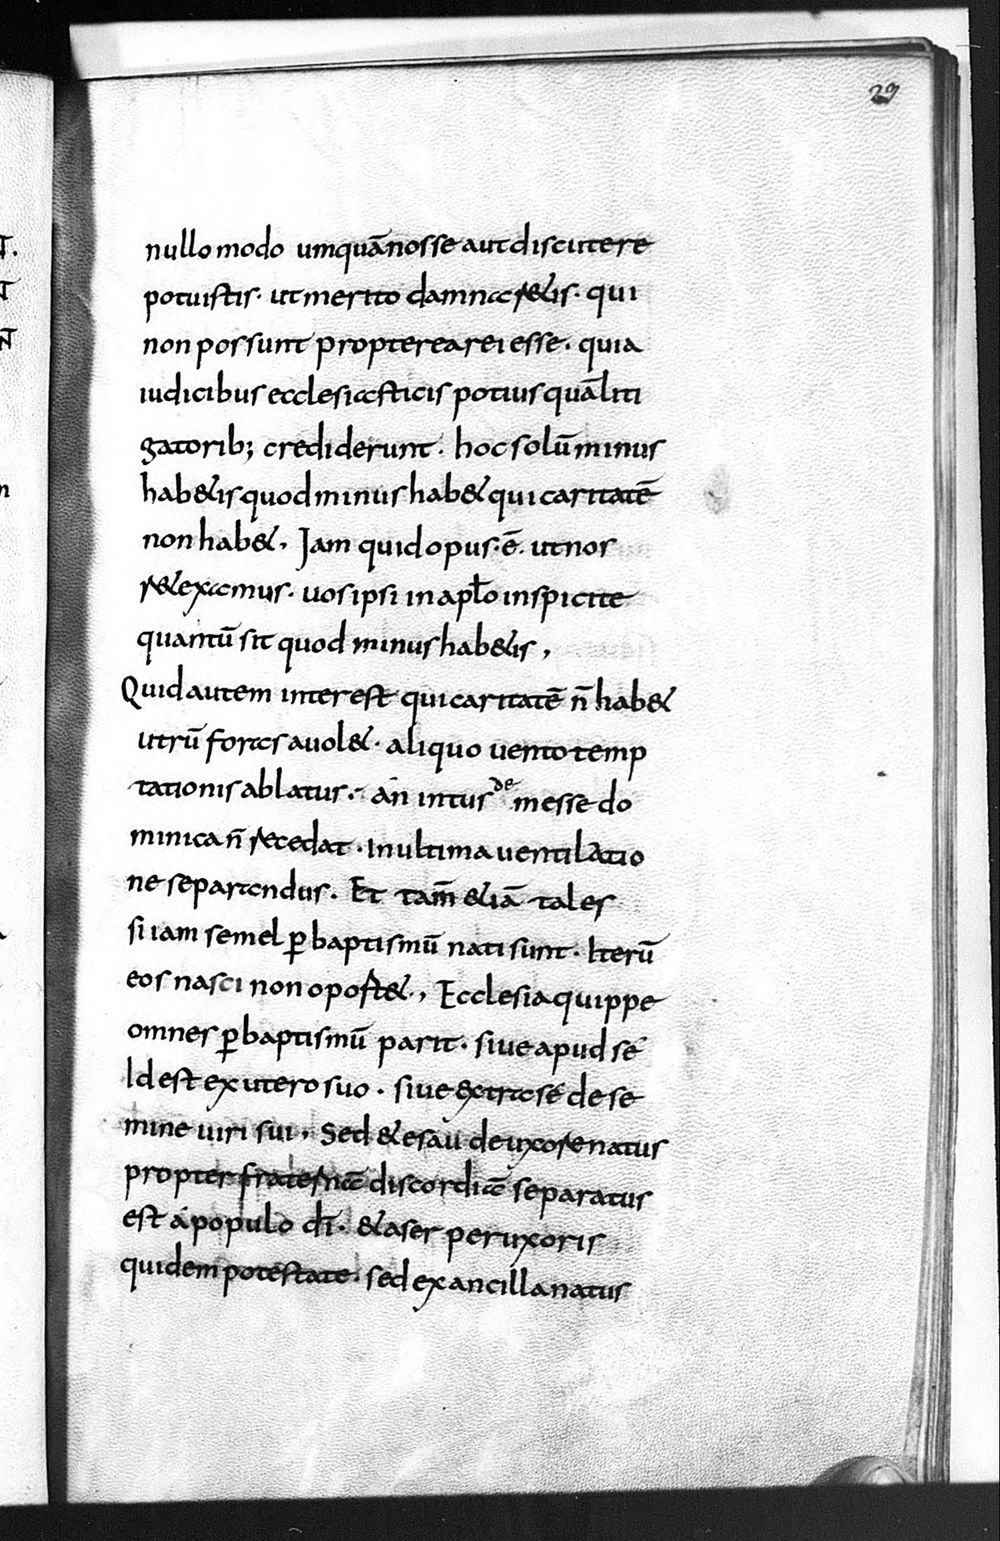 29
nullo modo umquā nosse aut discutere
potuistis · ut merito damnaretis · qui
non possunt propterea rei esse · quia
iudicibus ecclesiasticis potius quā liti
gatorib; crediderunt · hoc solū minus
hab&is quod minus hab& qui caritatē
non hab&, Jam quid opus · ē · ut nos
r&examus · uos ipsi in apło inspicite
quantū sit quod minus hab&is,
Quid autem interest qui caritatē n̄ hab&
utrū fortas auol& · aliquo uento temp
tationis ablatus · an intus de messe do
minica n̄ recedat · In ultima uentilatio
ne separandus. Et tam̄ &iā tales
si iam semel ꝑ baptismū nati sunt · Iterū
eos nasci non opost&, Ecclesia quippe
omnes ꝑ baptismū parit · siue apud sé
Id est ex utero suo · siue extra sé de se
mine uiri sui, Sed & esau de uxore natus
propter fraternā discordiā separatus
est á populo dī · & aser per uxoris
quidem potestate · sed ex ancilla natus